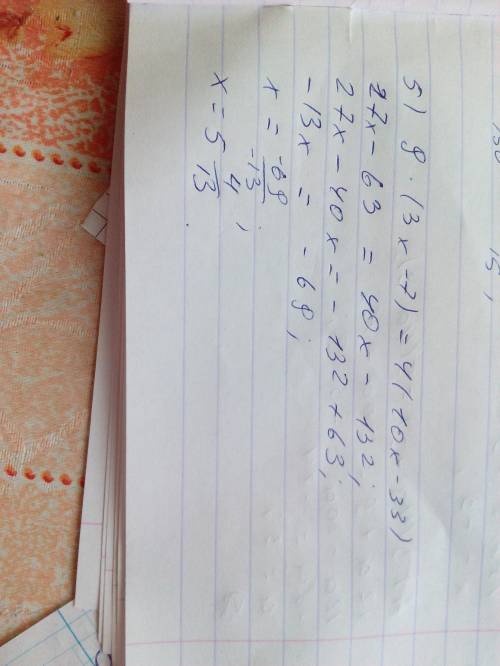 5) 9·(3x-7)=4(10x-33)
27x-63 = 40x-132;
27x-40x=-132+63;
-13x = -69;
x = -69/-13;
x = 5 4/13